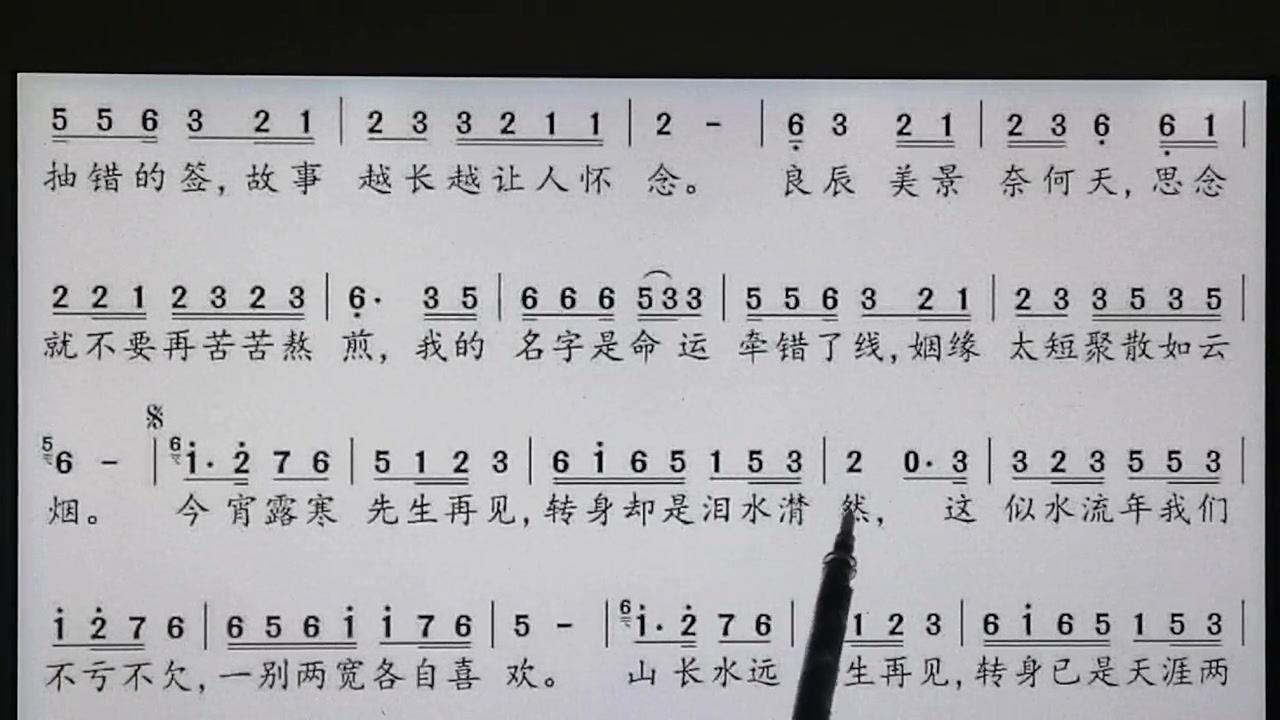 5 5 6 3 2 1 | 2 3 3 2 1 1 | 2 – | 6 3 2 1 | 2 3 6 6 1 |
抽错的签,故事 越长越让人怀 念。 良辰 美景 奈何天,思念
2 2 1 2 3 2 3 | 6· 3 5 | 6 6 6 5 3 3 | 5 5 6 3 2 1 | 2 3 3 5 3 5 |
就不要再苦苦熬 煎,我的 名字是命运 牵错了线,姻缘 太短聚散如云
5 6 – | 6 i· 2 7 6 | 5 1 2 3 | 6 i 6 5 1 5 3 | 2 0· 3 | 3 2 3 5 5 3 |
烟。 今宵露寒 先生再见,转身却是泪水潸 然, 这 似水流年我们
i 2 7 6 | 6 5 6 i i 7 6 | 5 – | 6 i· 2 7 6 | 1 2 3 | 6 i 6 5 1 5 3 |
不亏不欠,一别两宽各自喜 欢。 山长水远 生再见,转身已是天涯两